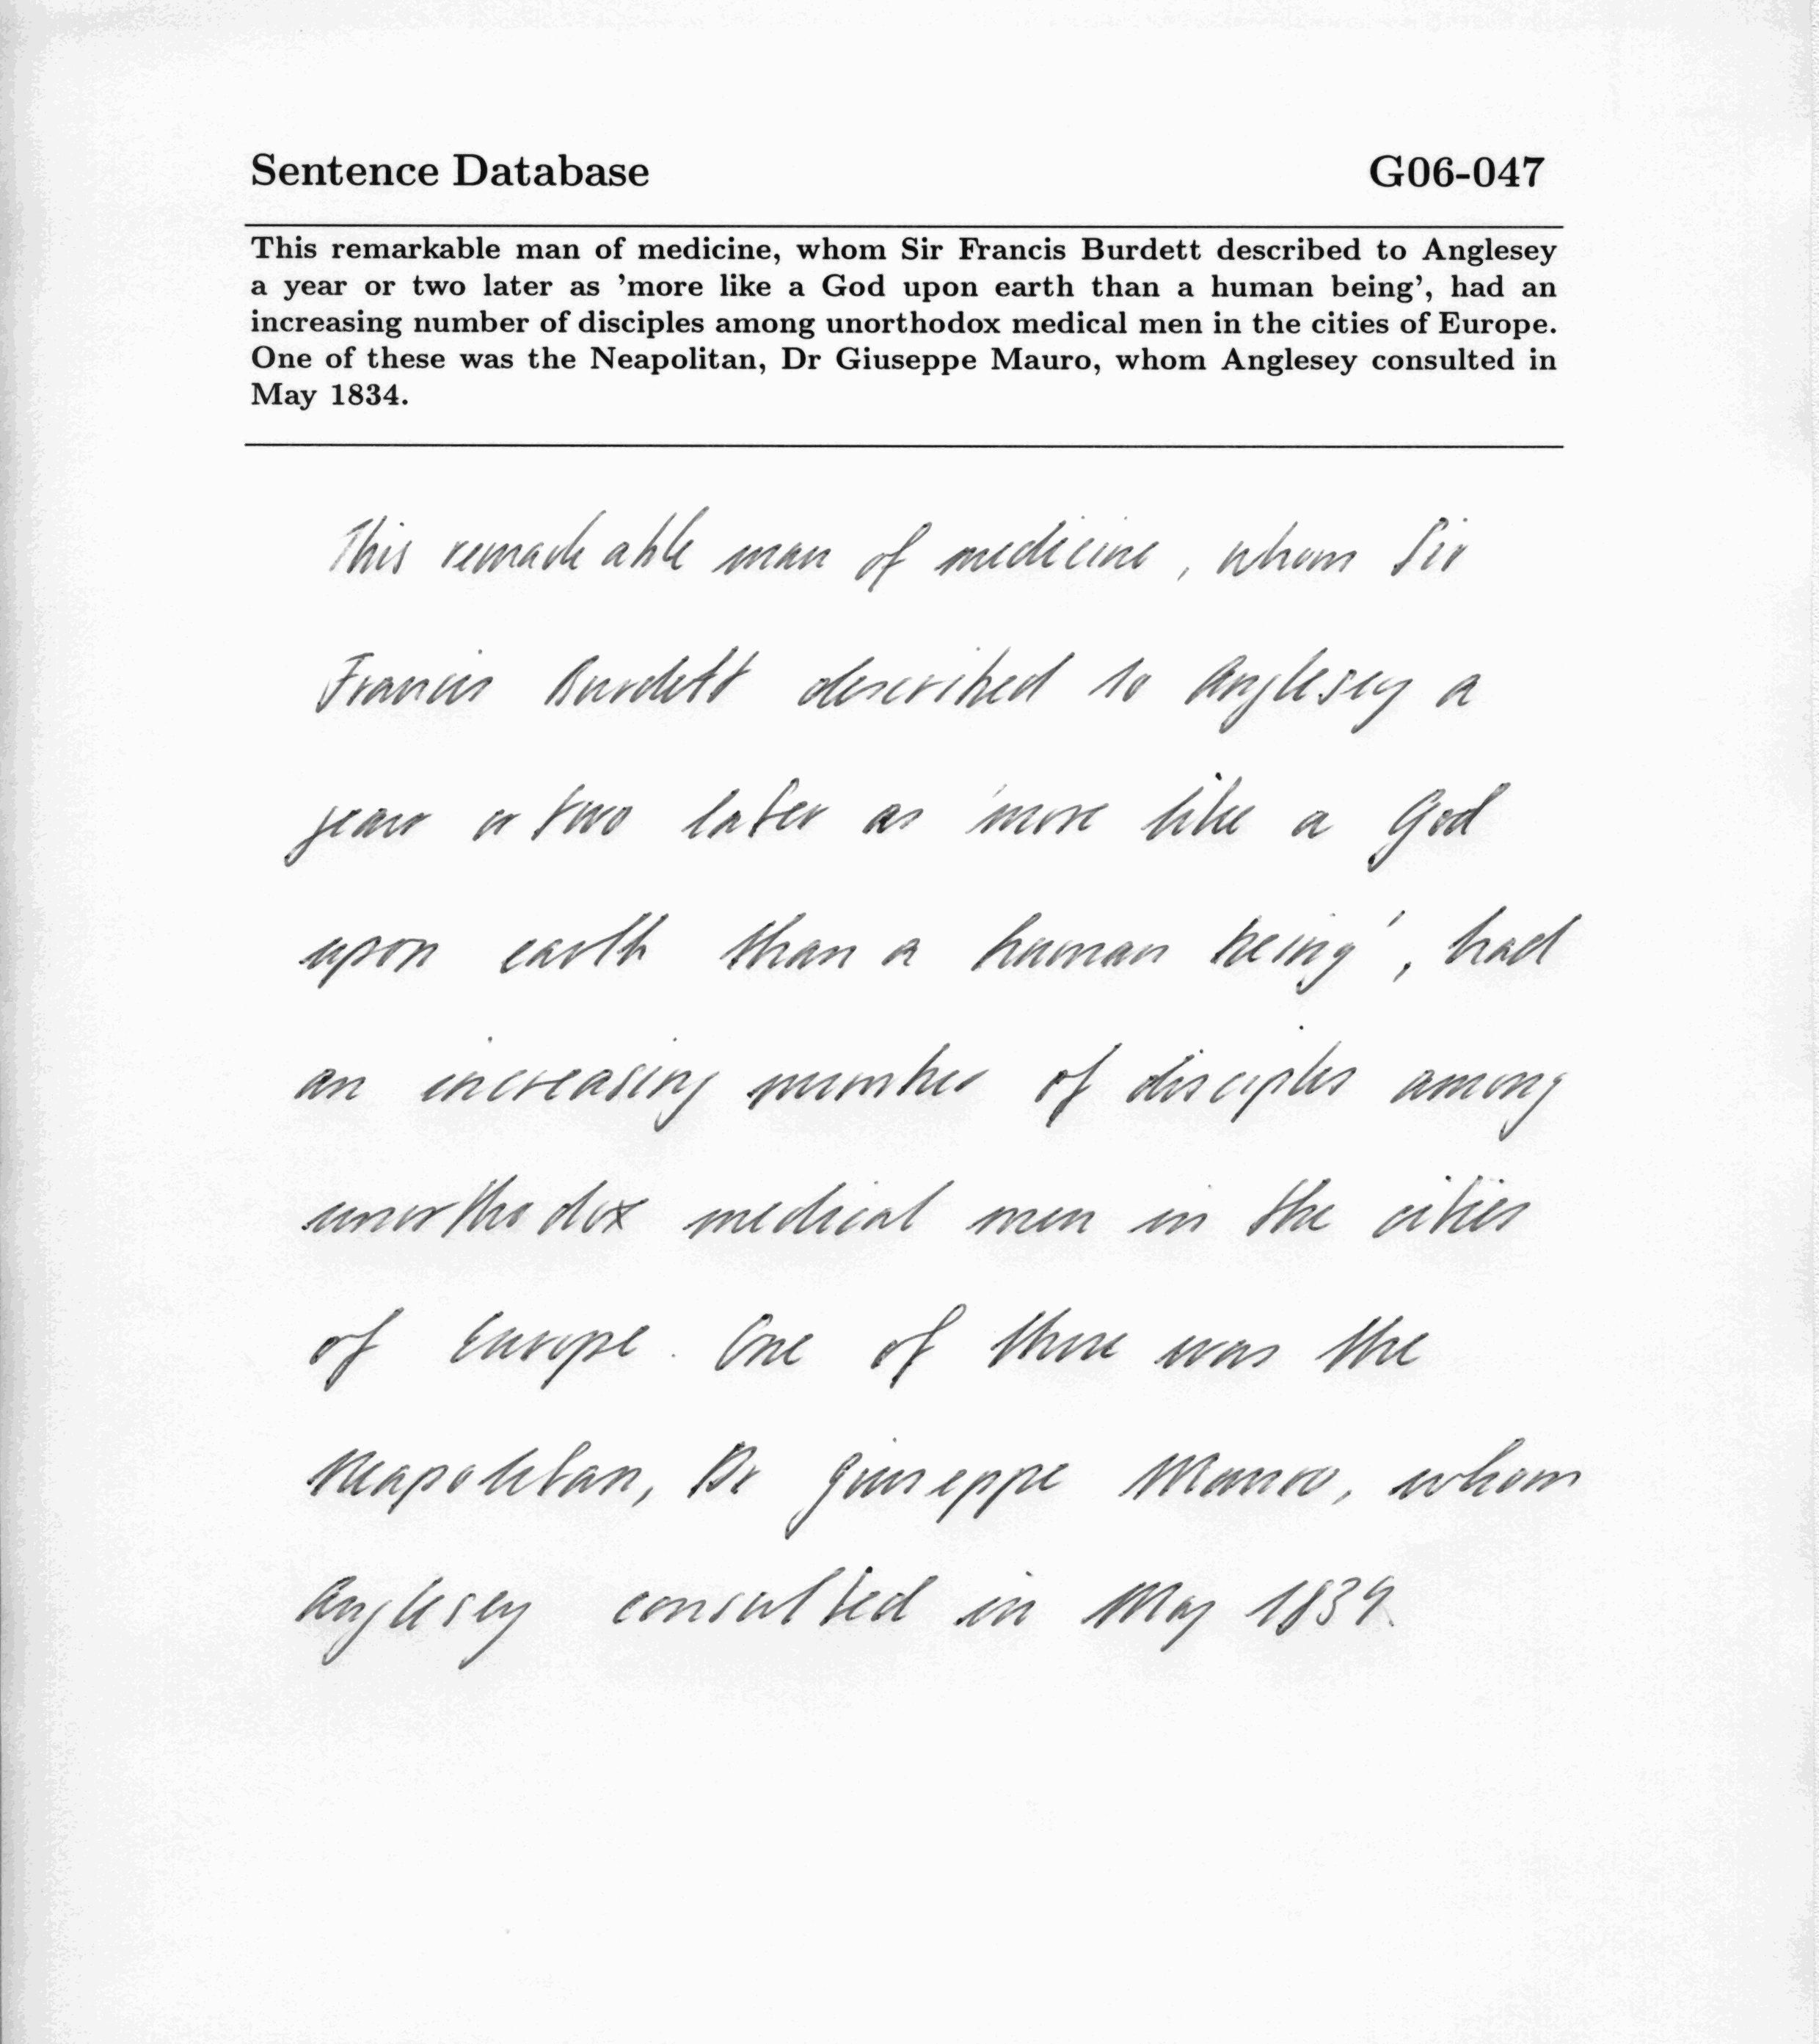 Sentence Database G06-047
This remarkable man of medicine, whom Sir Francis Burdett described to Anglesey
a year or two later as 'more like a God upon earth than a human being', had an
increasing number of disciples among unorthodox medical men in the cities of Europe.
One of these was the Neapolitan, Dr Giuseppe Mauro, whom Anglesey consulted in
May 1834.
This remarkable man of medicine, whom Sir
Francis Burdett described to Anglesey a
year or two later as 'more like a God
upon earth than a human being', had
an increasing number of disciples among
unorthodox medical men in the cities
of Europe. One of these was the
Neapolitan, Dr Giuseppe Mauro, whom
Anglesey consulted in May 1834.